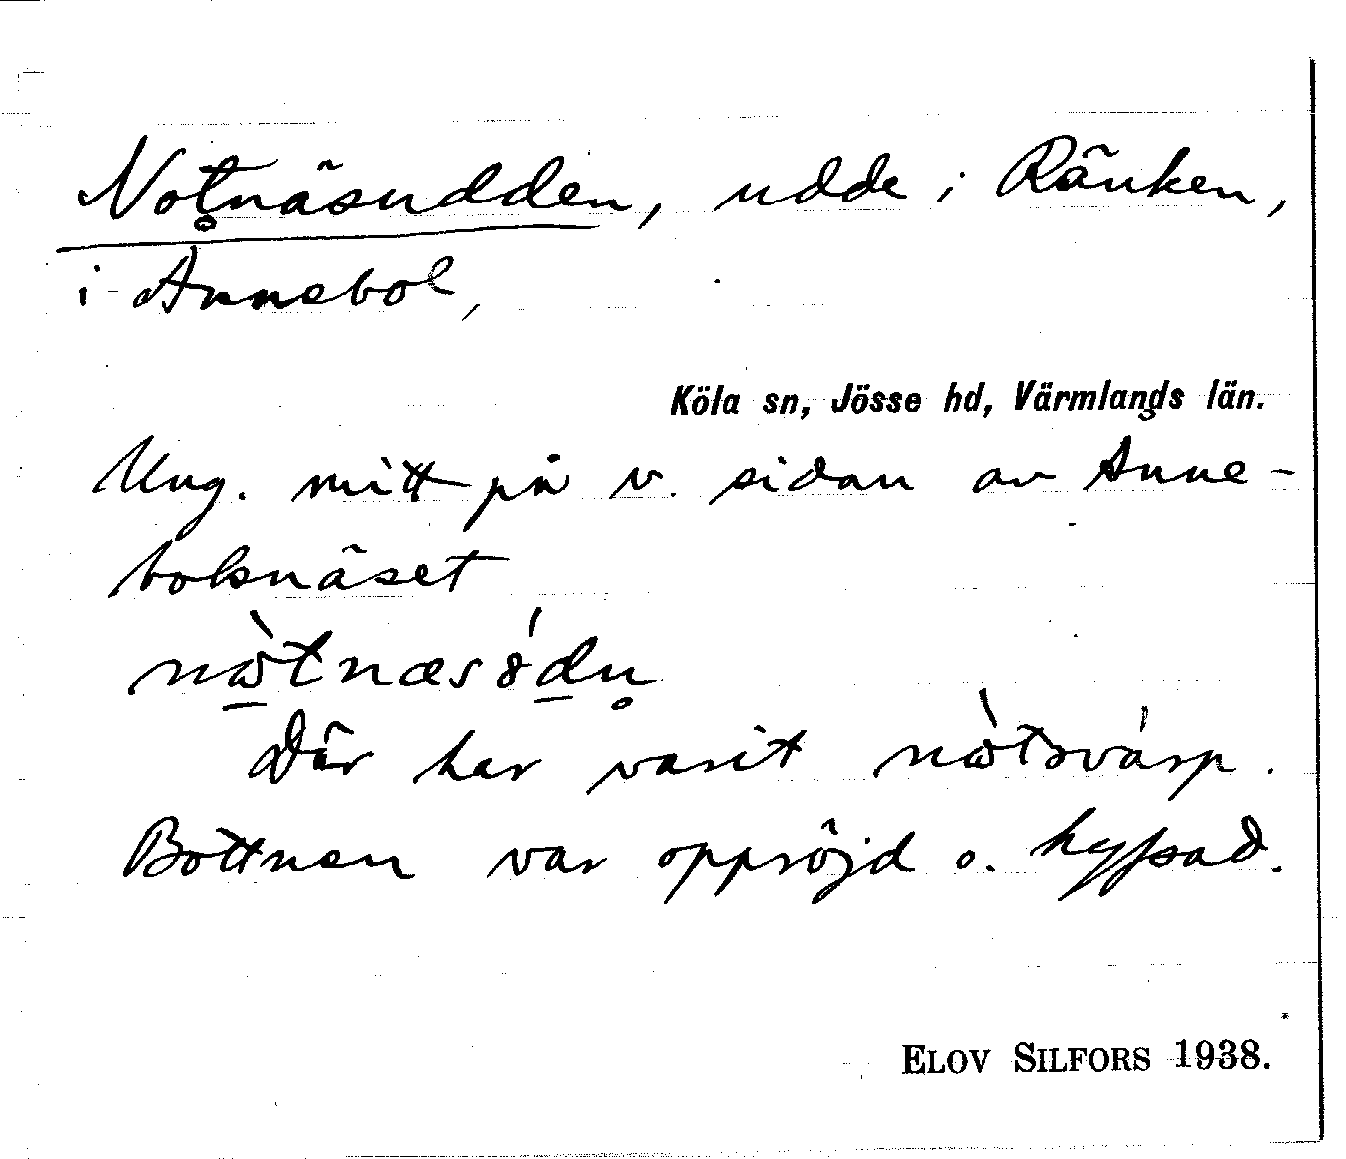 Notnäsudden, udde i Ränken,
i Annebol,
Köla sn, Jösse hd, Värmlands län.
Ung. mitt på v. sidan av Anne-
bolsnäset
nὼtnæsȣ́dn̥
Där har varit nὼtsvárp.
Bottnen var oppröjd o. hyfsad.
ELOV SILFORS 1938.